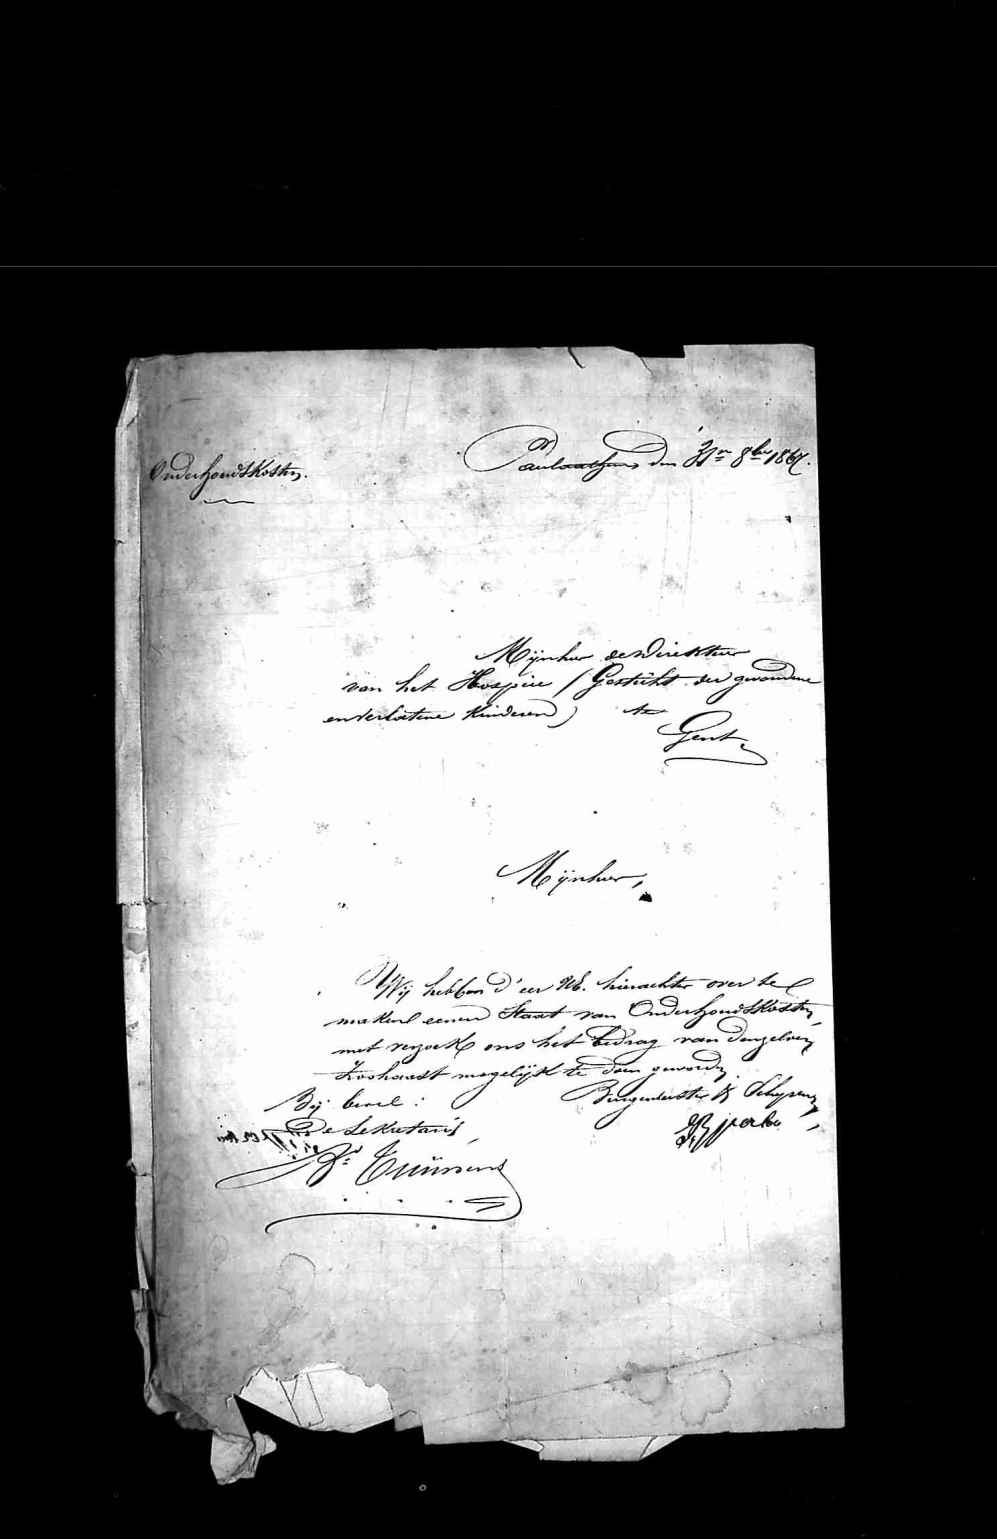 Onderhoudskosten.
Paulaathem den 31en 8ber 1867.
Mijnheer de Direkteur
van het Hospice (Gesticht der gevondene
en Verlatene Kinderen) te
Gent
Mijnheer,
Wij hebben d'eer UE. hierachter over te
maken eenen Staat van Onderhoudskosten,
met verzoek ons het bedrag van denzelven
Zoohaast mogelijk te doen geworden.
Bij bevel: Burgemeester & Schepenen,
De Sekretaris,